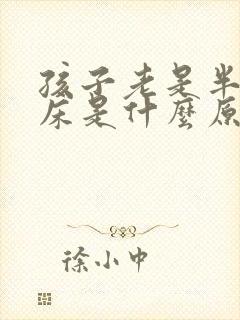 孩子老是半
床是什麼原
徐小中